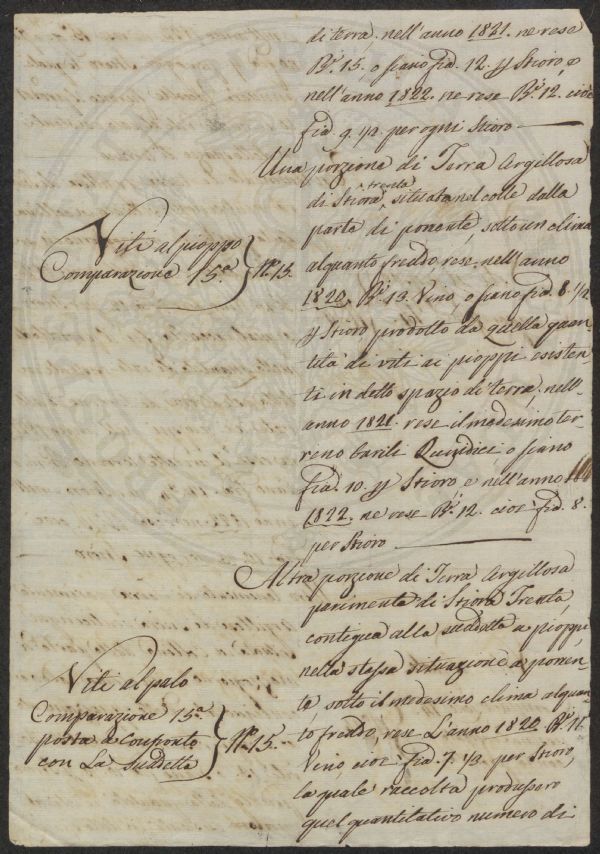 di terra, nell'anno 1821. ne rese
B.i 15, o siano fia. 12. p Stioro, e
nell'anno 1822. ne rese B.i 12. cioè
fia. 9. 1/2. per ogni Stioro
Una porzione di Terra Argillosa
di Stiora trenta, situata nel colle dalla
parte di ponente, sotto un clima
alquanto freddo rese nell'anno
1820, B.i 13. Vino, o siano fia. 8. 1/2
p Stioro, prodotto da quella quan-
tità di viti ai pioppi esisten-
ti in detto spazio di terra, nell'
anno 1821. rese il medesimo ter-
reno barili Quindici, o siano
fia. 10. p Stioro, e nell'anno
1822. ne rese B.i 12. cioè fia. 8.
per Stioro
Viti al pioppo
Comparazione 15.a } N.o 15.
Altra porzione di Terra Argillosa
parimente di Stiora Trenta,
contigua alla suddetta a pioppi
nella stessa situazione a ponen-
te sotto il medesimo clima alquan-
to freddo, rese L'anno 1820 B.i 11
Vino, cioè fia. 7. 1/3. per Stioro,
la quale raccolta produssero
quel quantitativo numero di
Viti al palo
Comparazione 15.a
posta a confronto
con La Suddetta } N.o 15.